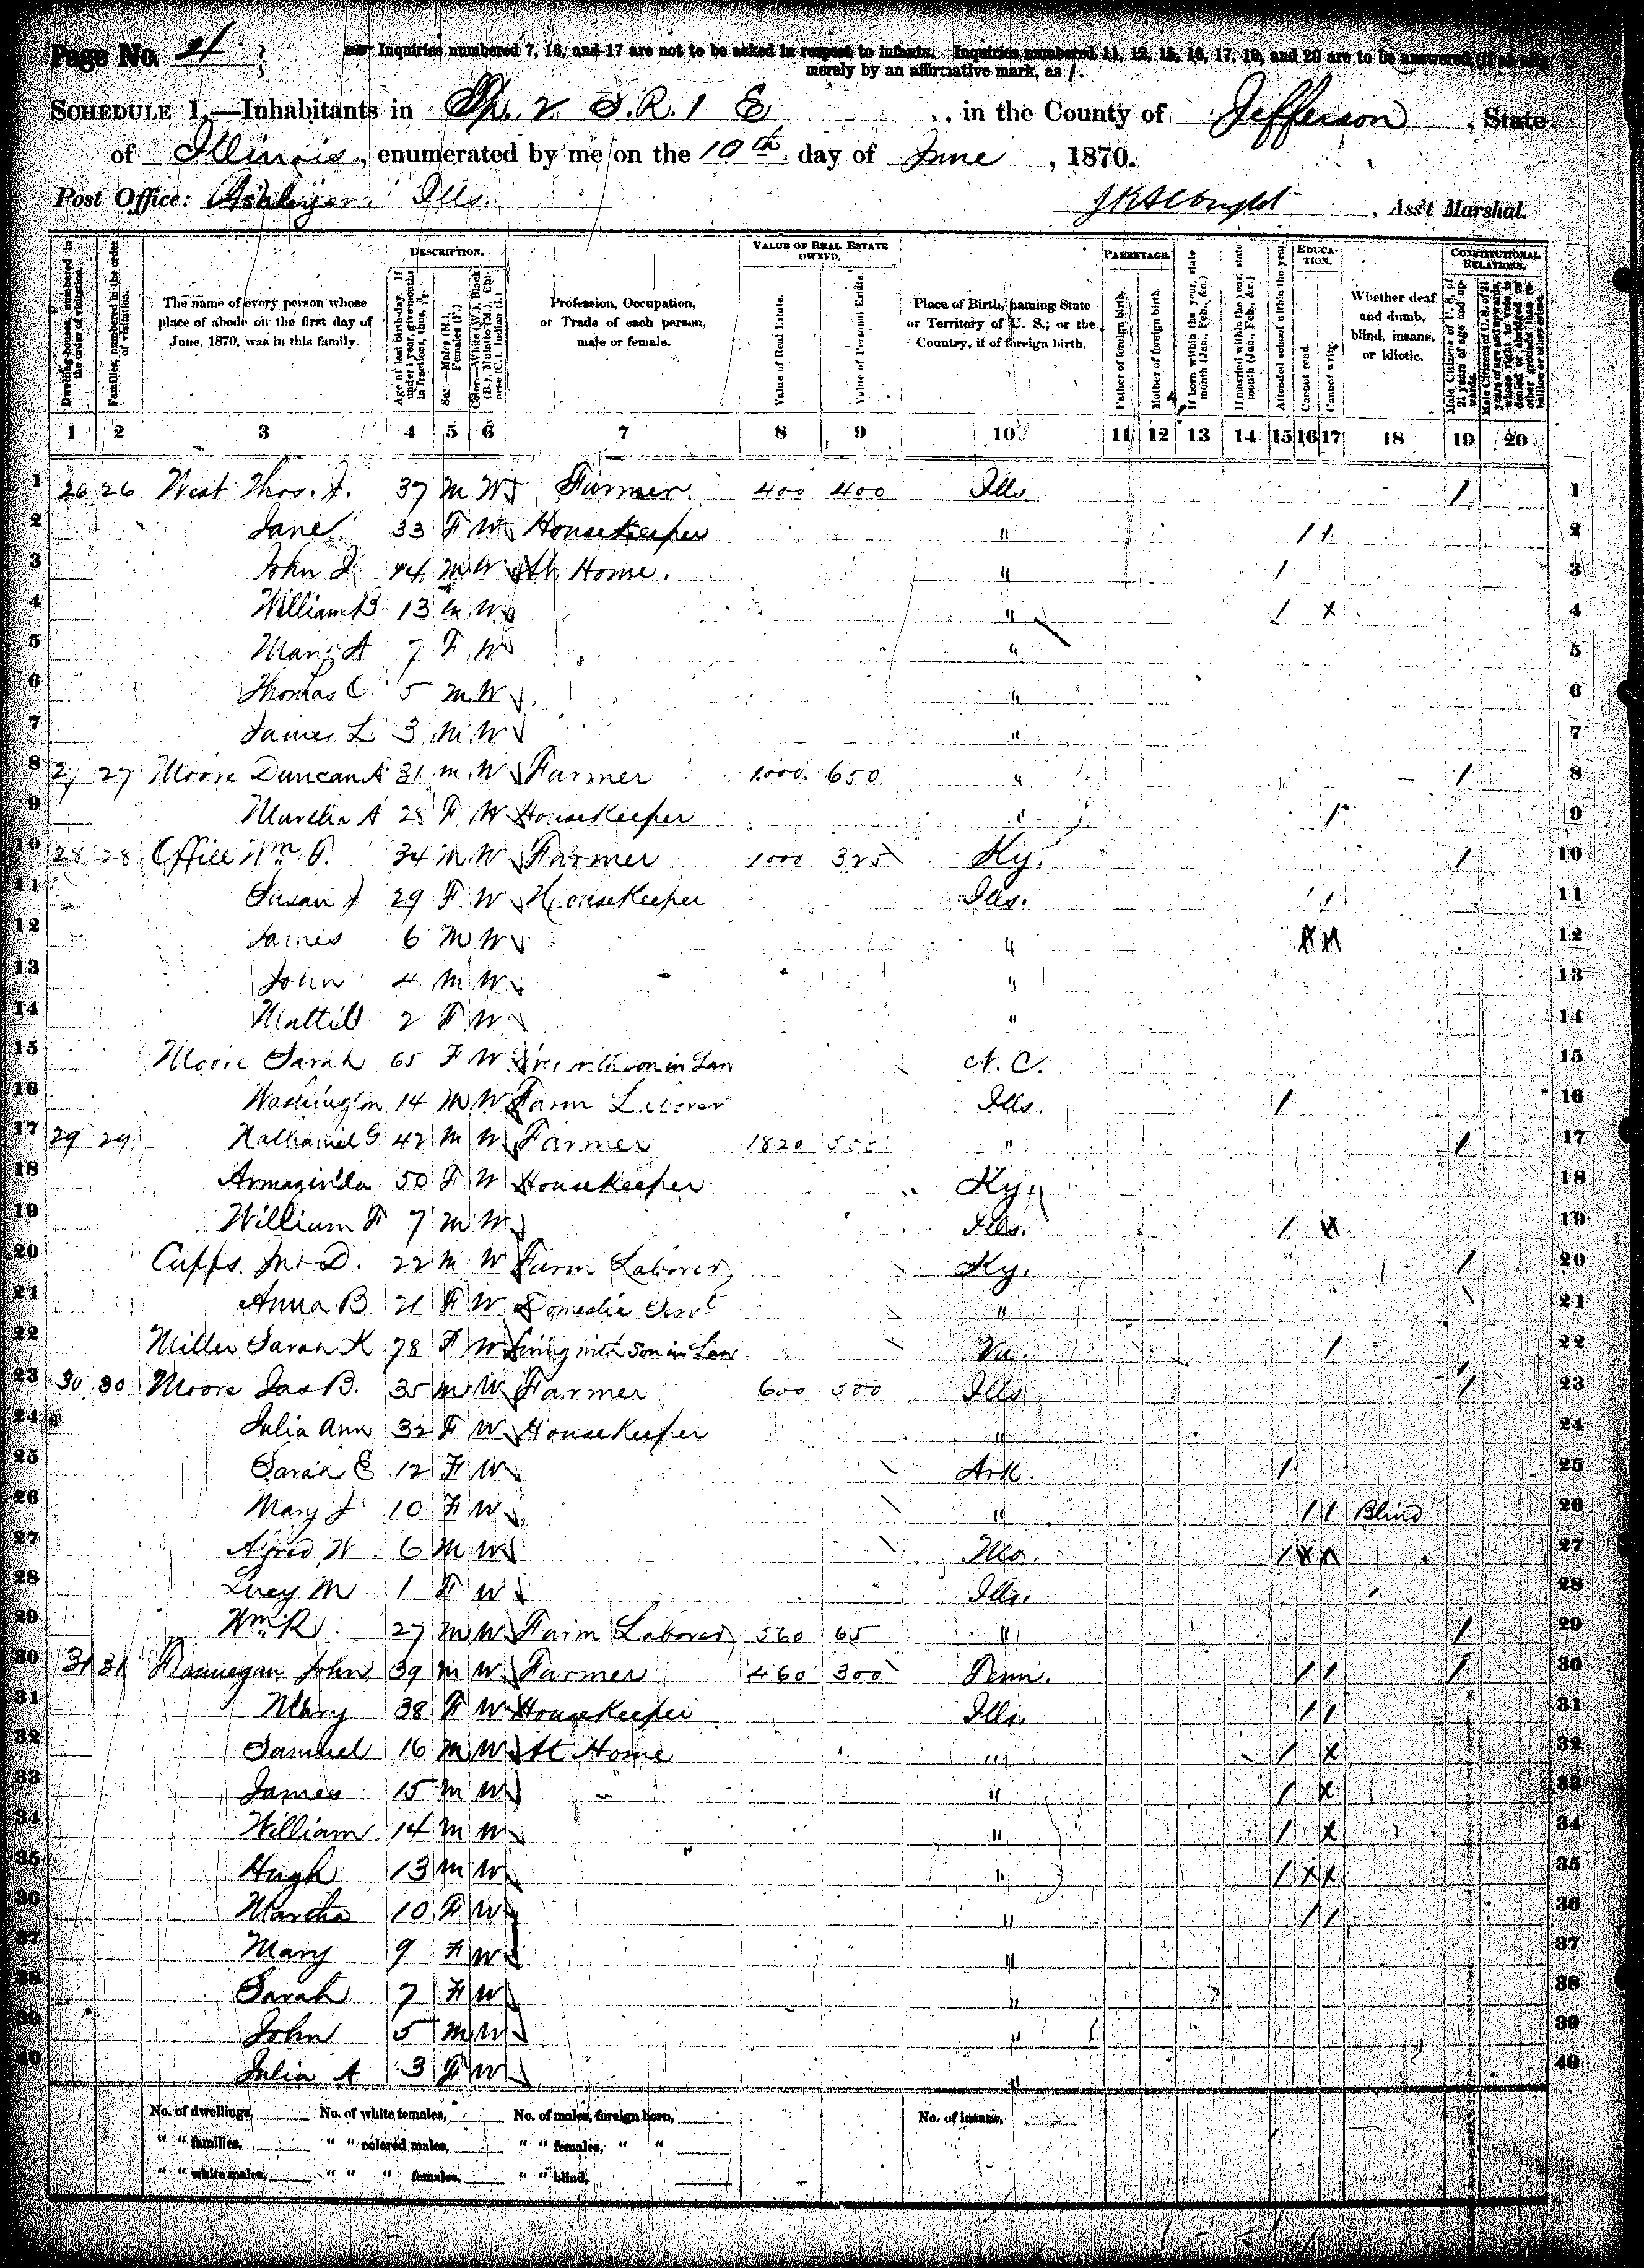 Page No. 4
Inquiries numbered 7, 16, and 17 are not to be asked in respect to infants. Inquiries numbered 11, 12, 15, 16, 17, 19, and 20 are to be answered (if at all)
merely by an affirmative mark, as /.
SCHEDULE 1.—Inhabitants in Tp. 2 S. R. 1 E, in the County of Jefferson, State
of Illinois, enumerated by me on the 10th day of June, 1870.
Post Office: Ills. , Ass't Marshal.
DESCRIPTION. VALUE OF REAL ESTATE OWNED. PARENTAGE. EDUCATION. CONSTITUTIONAL RELATIONS.
Dwelling-houses, numbered in the order of visitation.
Families, numbered in the order of visitation.
The name of every person whose place of abode on the first day of June, 1870, was in this family.
Age at last birth-day. If under 1 year, give months in fractions, thus,
Sex.—Males (M.), Females (F.)
Color.—White (W.), Black (B.), Mulatto (M.), Chinese (C.), Indian (I.)
Profession, Occupation, or Trade of each person, male or female.
Value of Real Estate.
Value of Personal Estate.
Place of Birth, naming State or Territory of U. S.; or the Country, if of foreign birth.
Father of foreign birth.
Mother of foreign birth.
If born within the year, state month (Jan., Feb., &c.)
If married within the year, state month (Jan., Feb., &c.)
Attended school within the year.
Cannot read.
Cannot write.
Whether deaf and dumb, blind, insane, or idiotic.
Male Citizens of U. S. of 21 years of age and upwards.
Male Citizens of U. S. of 21 years of age and upwards, whose right to vote is denied or abridged on other grounds than rebellion or other crime.
1 2 3 4 5 6 7 8 9 10 11 12 13 14 15 16 17 18 19 20
1 26 26 West Thos. J. 37 M W Farmer 400 400 Ills / 1
2 Jane 33 F W Housekeeper " / / 2
3 John J 14 M W At Home " / 3
4 William B 13 M W " / x 4
5 Mary A 7 F W " 5
6 Thomas C. 5 M W " 6
7 James L 3 M W " 7
8 27 27 Moore Duncan A 31 M W Farmer 1000 650 " / 8
9 Martha A 28 F W Housekeeper " / 9
10 28 28 Wm 34 M W Farmer 1000 325 Ky. / 10
11 Susan J 29 F W Housekeeper Ills. / / 11
12 James 6 M W " 12
13 John 4 M W " 13
14 2 F W " 14
15 Moore Sarah 65 F W son in Law N. C. 15
16 Washington 14 M W Farm Laborer Ills. / 16
17 29 29 Nathaniel G 42 M W Farmer 1820 " / 17
18 50 F W Housekeeper Ky 18
19 William F 7 M W Ills. / x 19
20 Cupps D. 22 M W Farm Laborer Ky. / 20
21 Anna B 21 F W Domestic Servt " 21
22 Miller Sarah K 78 F W Living with son in Law Va. / 22
23 30 30 Moore Jas B. 35 M W Farmer 600 500 Ills / 23
24 Julia Ann 32 F W Housekeeper " 24
25 Sarah E 12 F W Ark. / 25
26 Mary J 10 F W " / / Blind 26
27 Alfred W 6 M W Mo. / x x 27
28 Lucy M 1 F W Ills. 28
29 Wm. R 27 M W Farm Laborer 560 65 " / 29
30 31 31 Flannegan John 39 M W Farmer 460 300 Penn. / / / 30
31 Mary 38 F W Housekeeper Ills. / / 31
32 Samuel 16 M W At Home " / x 32
33 James 15 M W " / x 33
34 William 14 M W " / x 34
35 Hugh 13 M W " / x x 35
36 Martha 10 F W " / / 36
37 Mary 9 F W " 37
38 Sarah 7 F W " 38
39 John 5 M W " 39
40 Julia A 3 F W " 40
No. of dwellings, No. of white females, No. of males, foreign born, No. of insane,
" " families, " " colored males, " " females, " "
" " white males, " " " females, " " blind,